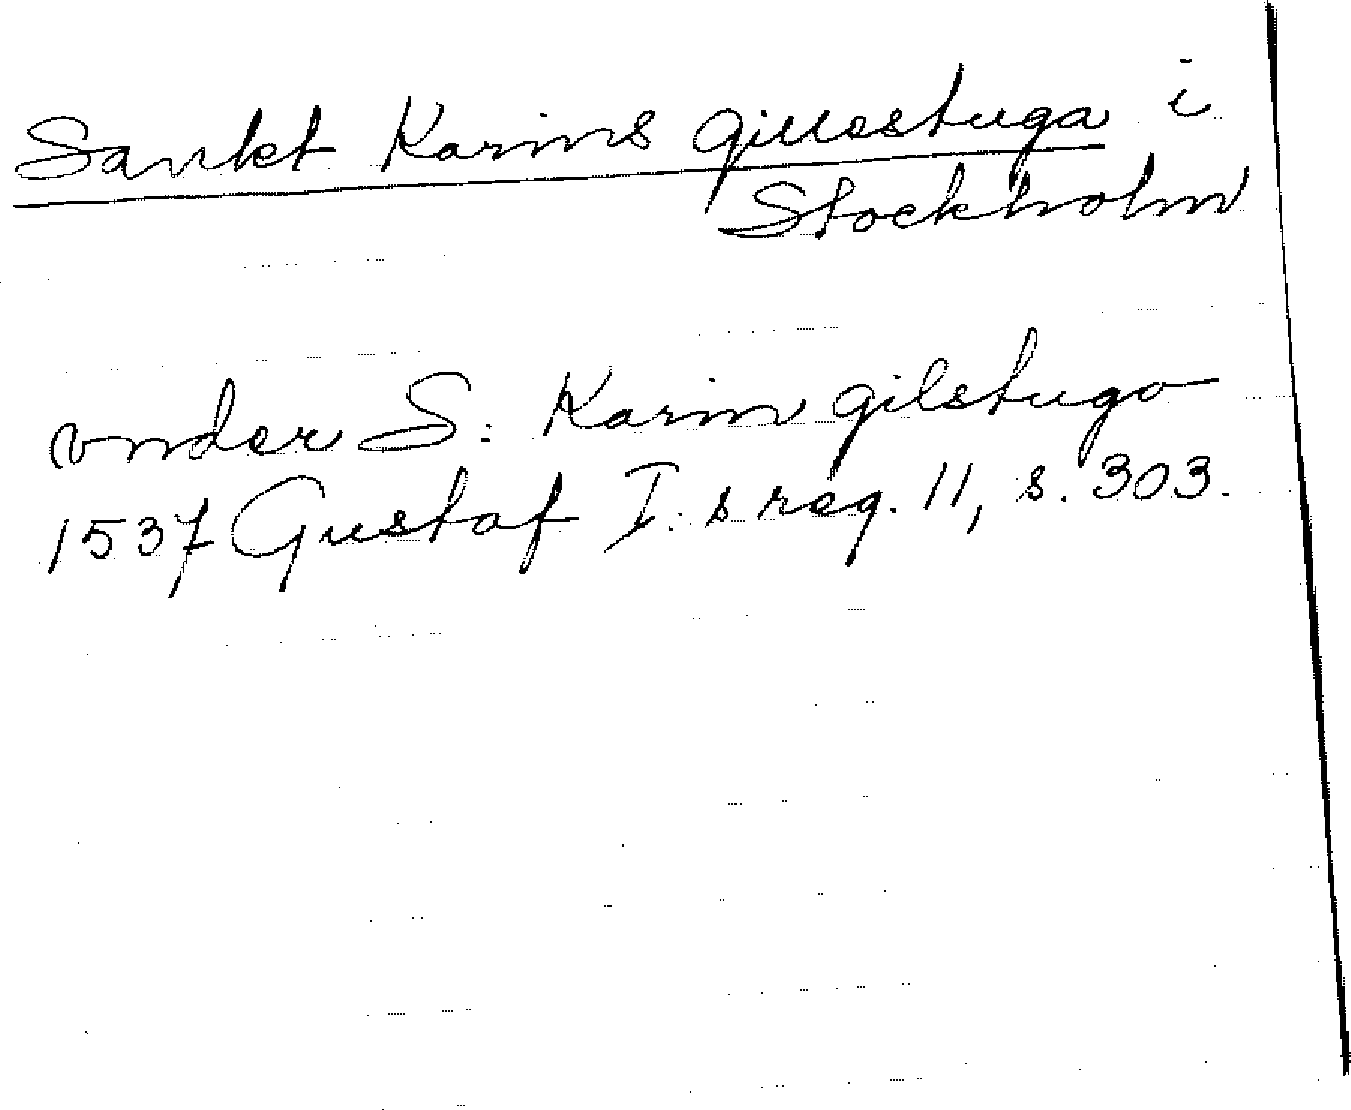 Sankt Karins gillestuga i
Stockholm
vnder S: Karin gilstugo
1537 Gustaf I:s reg. 11, s. 303.